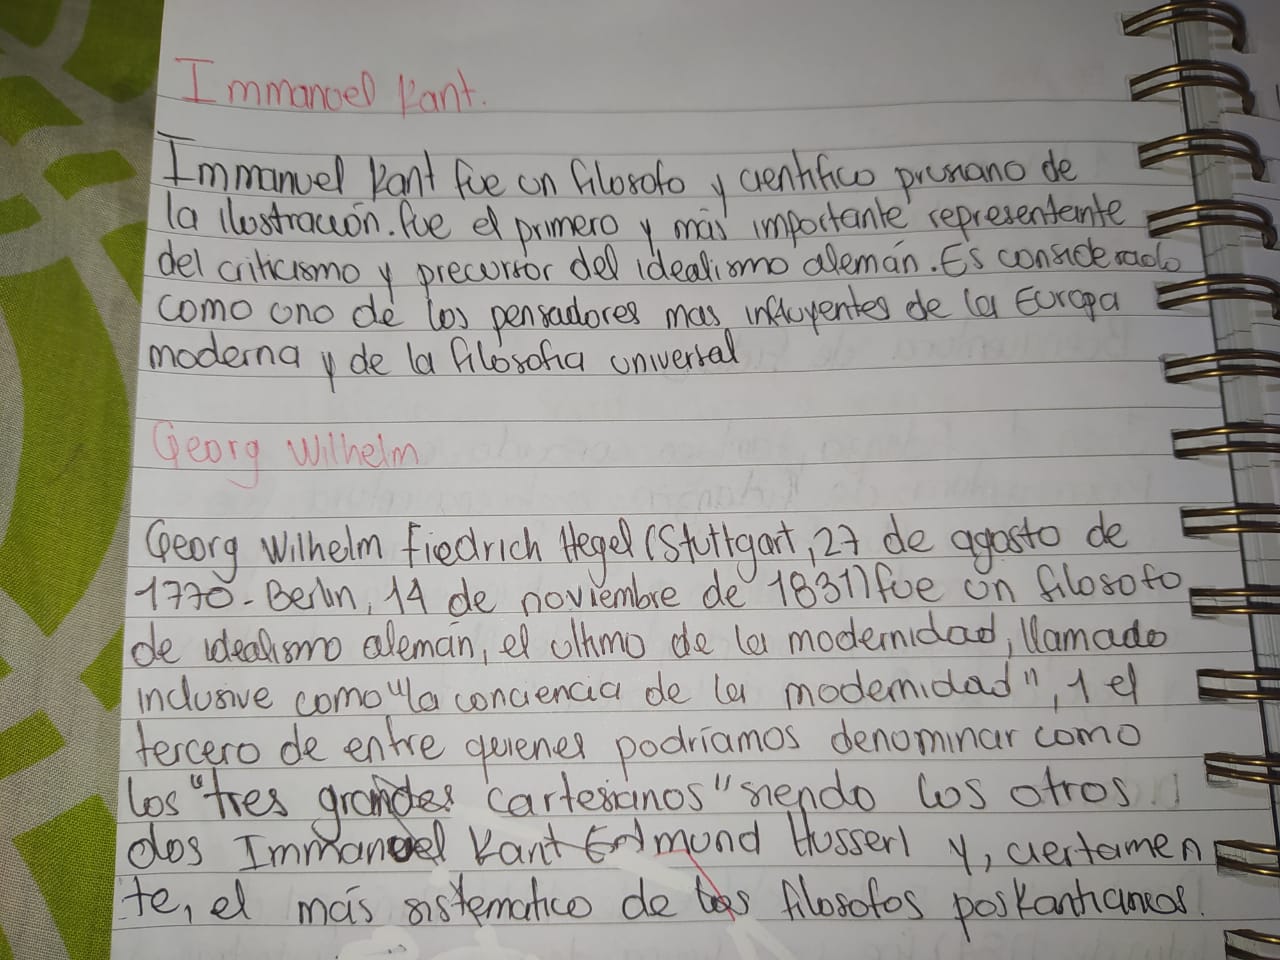 Immanuel Kant.
Immanuel Kant fue un filosofo y cientifico prusiano de
la ilustración. fue el primero y más importante representeante
del criticismo y precursor del idealismo alemán. Es considerado
como uno de los pensadores mas influyentes de la Europa
moderna y de la filosofia universal
Georg Wilhelm
Georg Wilhelm Fiedrich Hegel (Stuttgart, 27 de agosto de
1770 - Berlin, 14 de noviembre de 1831) fue un filosofo
de idealismo alemán, el ultimo de la modernidad, llamado
inclusive como "la conciencia de la modernidad", 1 el
tercero de entre quienes podríamos denominar como
los "tres grandes cartesianos" siendo los otros
dos Immanuel Kant Edmund Husserl y, ciertamen
te, el más sistematico de los filosofos poskantianos.